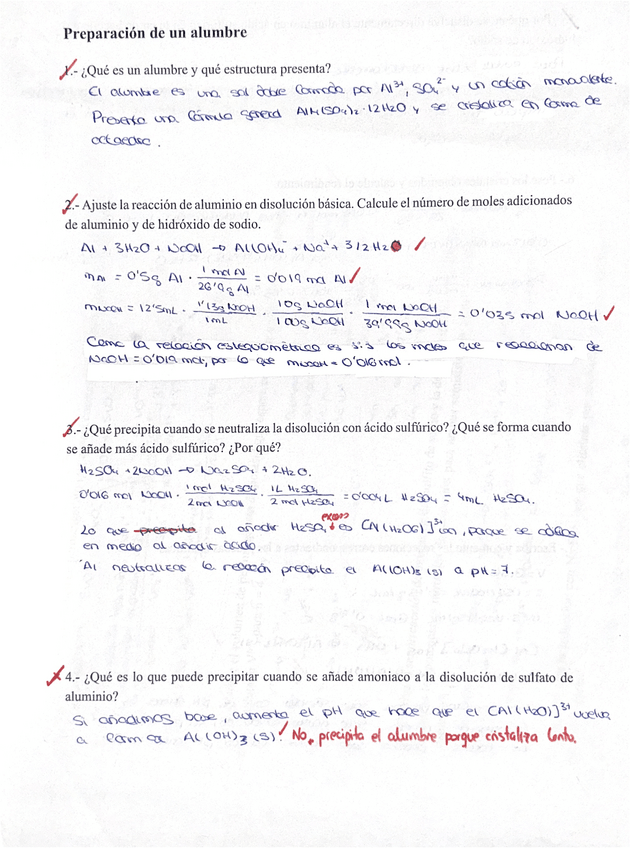 Preparación de un alumbre
1.- ¿Qué es un alumbre y qué estructura presenta?
El alumbre es una sal doble formada por Al³⁺, SO₄²⁻ y un catión monovalente.
Presenta una fórmula general AlM(SO₄)₂·12H₂O y se cristaliza en forma de
octaedro.
2.- Ajuste la reacción de aluminio en disolución básica. Calcule el número de moles adicionados
de aluminio y de hidróxido de sodio.
Al + 3H₂O + NaOH → Al(OH)₄⁻ + Na⁺ + 3/2 H₂
mAl = 0'5g Al · 1 mol Al / 26'9g Al = 0'019 mol Al
mNaOH = 12'5mL · 1'13g NaOH / 1mL · 10g NaOH / 100g NaOH · 1 mol NaOH / 39'99g NaOH = 0'035 mol NaOH
Como la relación estequiométrica es 1:1 los moles que reaccionan de
NaOH = 0'019 mol, por lo que mNaOH = 0'016 mol.
3.- ¿Qué precipita cuando se neutraliza la disolución con ácido sulfúrico? ¿Qué se forma cuando
se añade más ácido sulfúrico? ¿Por qué?
H₂SO₄ + 2NaOH → Na₂SO₄ + 2H₂O.
0'016 mol NaOH · 1 mol H₂SO₄ / 2 mol NaOH · 1L H₂SO₄ / 2 mol H₂SO₄ = 0'004L H₂SO₄ = 4mL H₂SO₄.
Lo que precipita al añadir H₂SO₄ exceso es [Al(H₂O)6]³⁺, porque se
en medio al añadir ácido.
Al neutralizar la reacción precipita el Al(OH)₃ (s) a pH = 7.
4.- ¿Qué es lo que puede precipitar cuando se añade amoniaco a la disolución de sulfato de
aluminio?
Si añadimos base, aumenta el pH que hace que el [Al(H₂O)]³⁺ vuelva
a formar Al(OH)₃ (s). No, precipita el alumbre porque cristaliza lento.